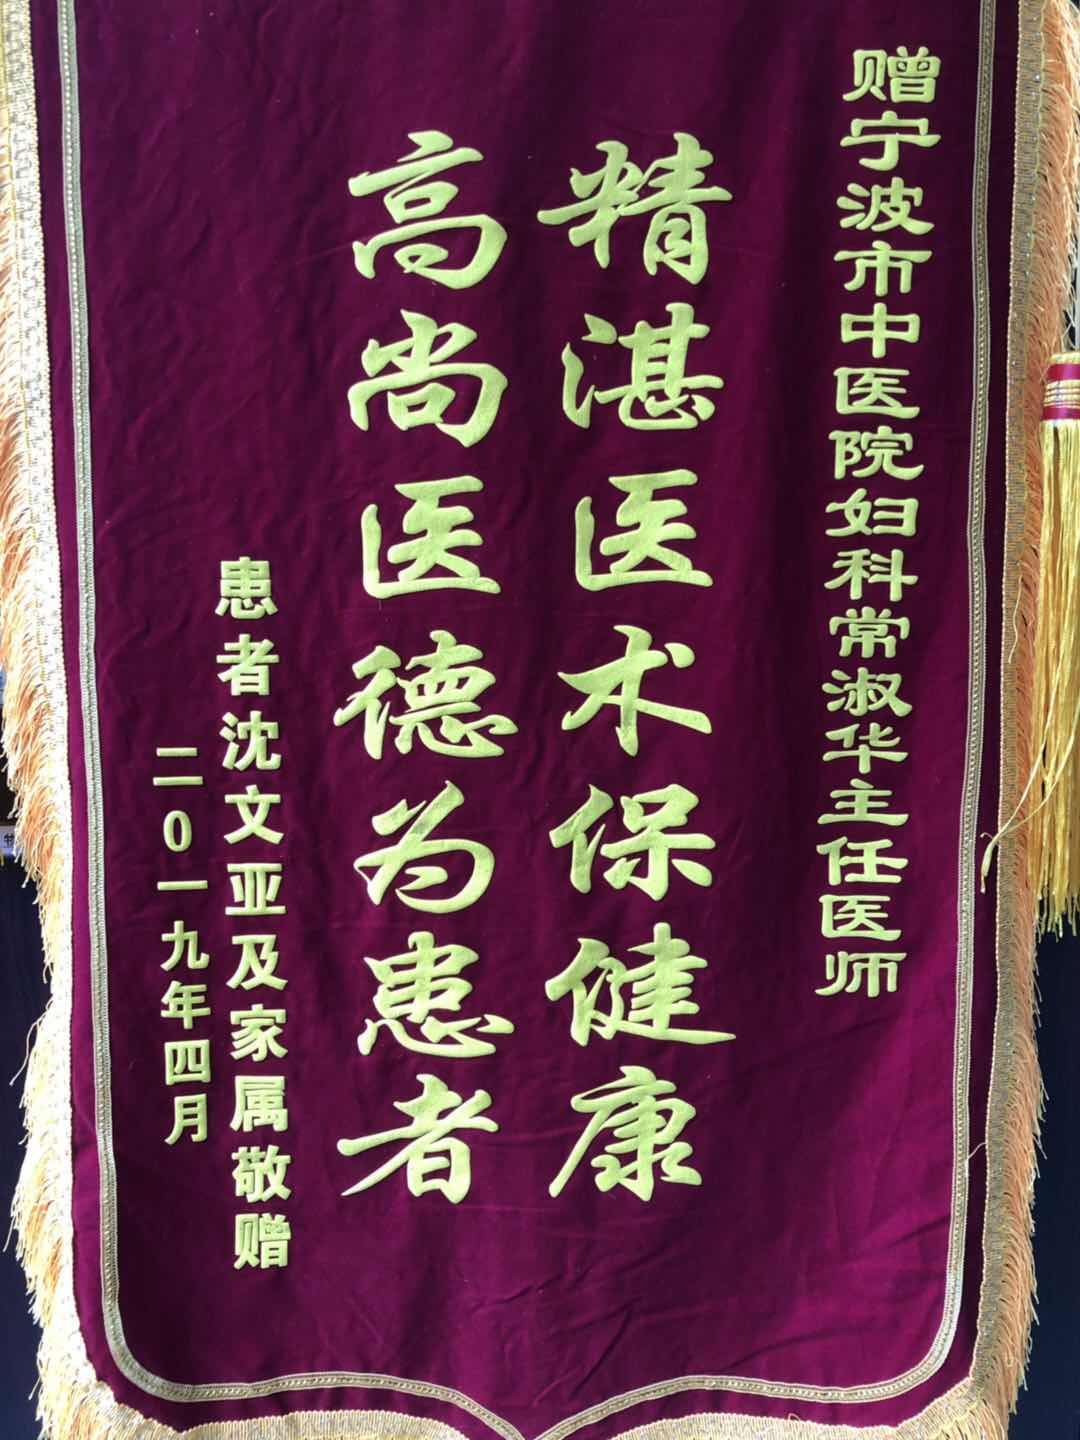 赠宁波市中医院妇科常淑华主任医师
精湛医术保健康
高尚医德为患者
患者沈文亚及家属敬赠
二0一九年四月